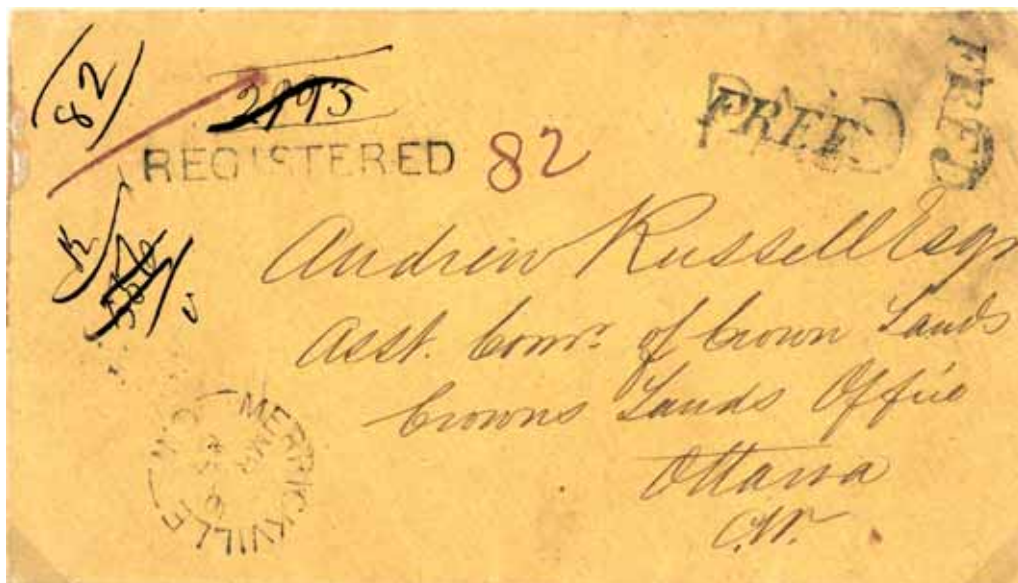 (82)
2993
REGISTERED 82
FREE
FREE
Andrew Russell Esqr
Asst. Comr. of Crown Lands
Crowns Lands Office
Ottawa
C.W.
MERRICKVILLE C.W.